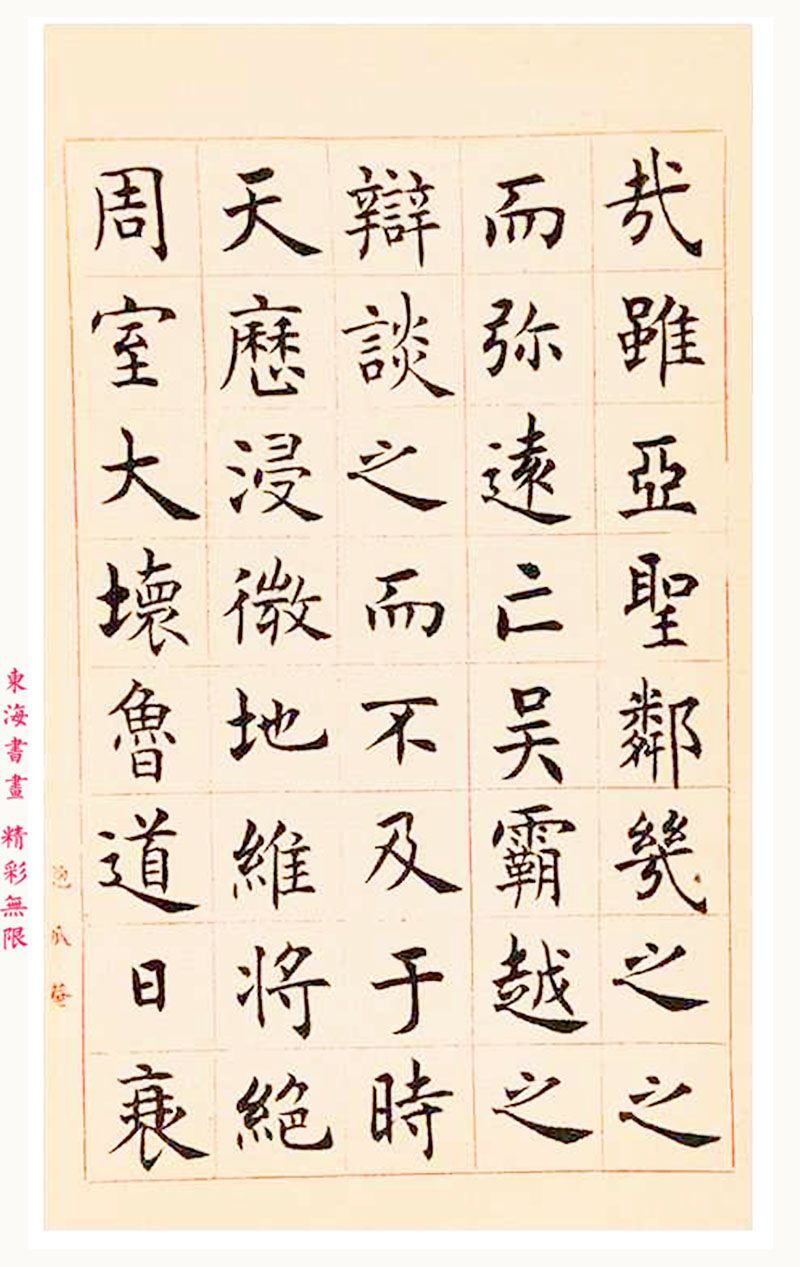 哉雖亞聖鄰幾之之
而弥遠亡吴霸越之
辯談之而不及于時
天歷浸微地維将絕
周室大壞魯道日衰
東海書畫 精彩無限